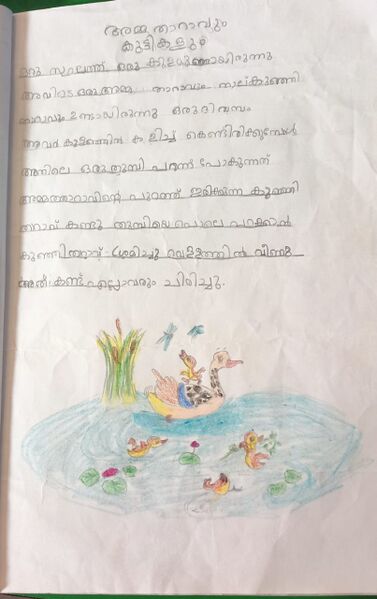 അമ്മ താറാവും
കുട്ടികളും
ഒരു സ്ഥലത്ത് ഒരു കുളമുണ്ടായിരുന്നു
അവിടെ ഒരു അമ്മ താറാവും നാല് കുഞ്ഞി
താറാവും ഉണ്ടായിരുന്നു ഒരു ദിവസം
അവർ കുളത്തിൽ കളിച്ച് കൊണ്ടിരിക്കുമ്പോൾ
അതിലെ ഒരു തുമ്പി പറന്ന് പോകുന്നത്
അമ്മത്താറാവിന്റെ പുറത്ത് ഇരിക്കുന്ന കുഞ്ഞി
തറാവ് കണ്ടു തുമ്പിയെ പൊലെ പറക്കാൻ
കുഞ്ഞിത്താവ് ശ്രമിച്ചു വെള്ളത്തിൽ വീണു
അത് കണ്ട് എല്ലാവരും ചിരിച്ചു.